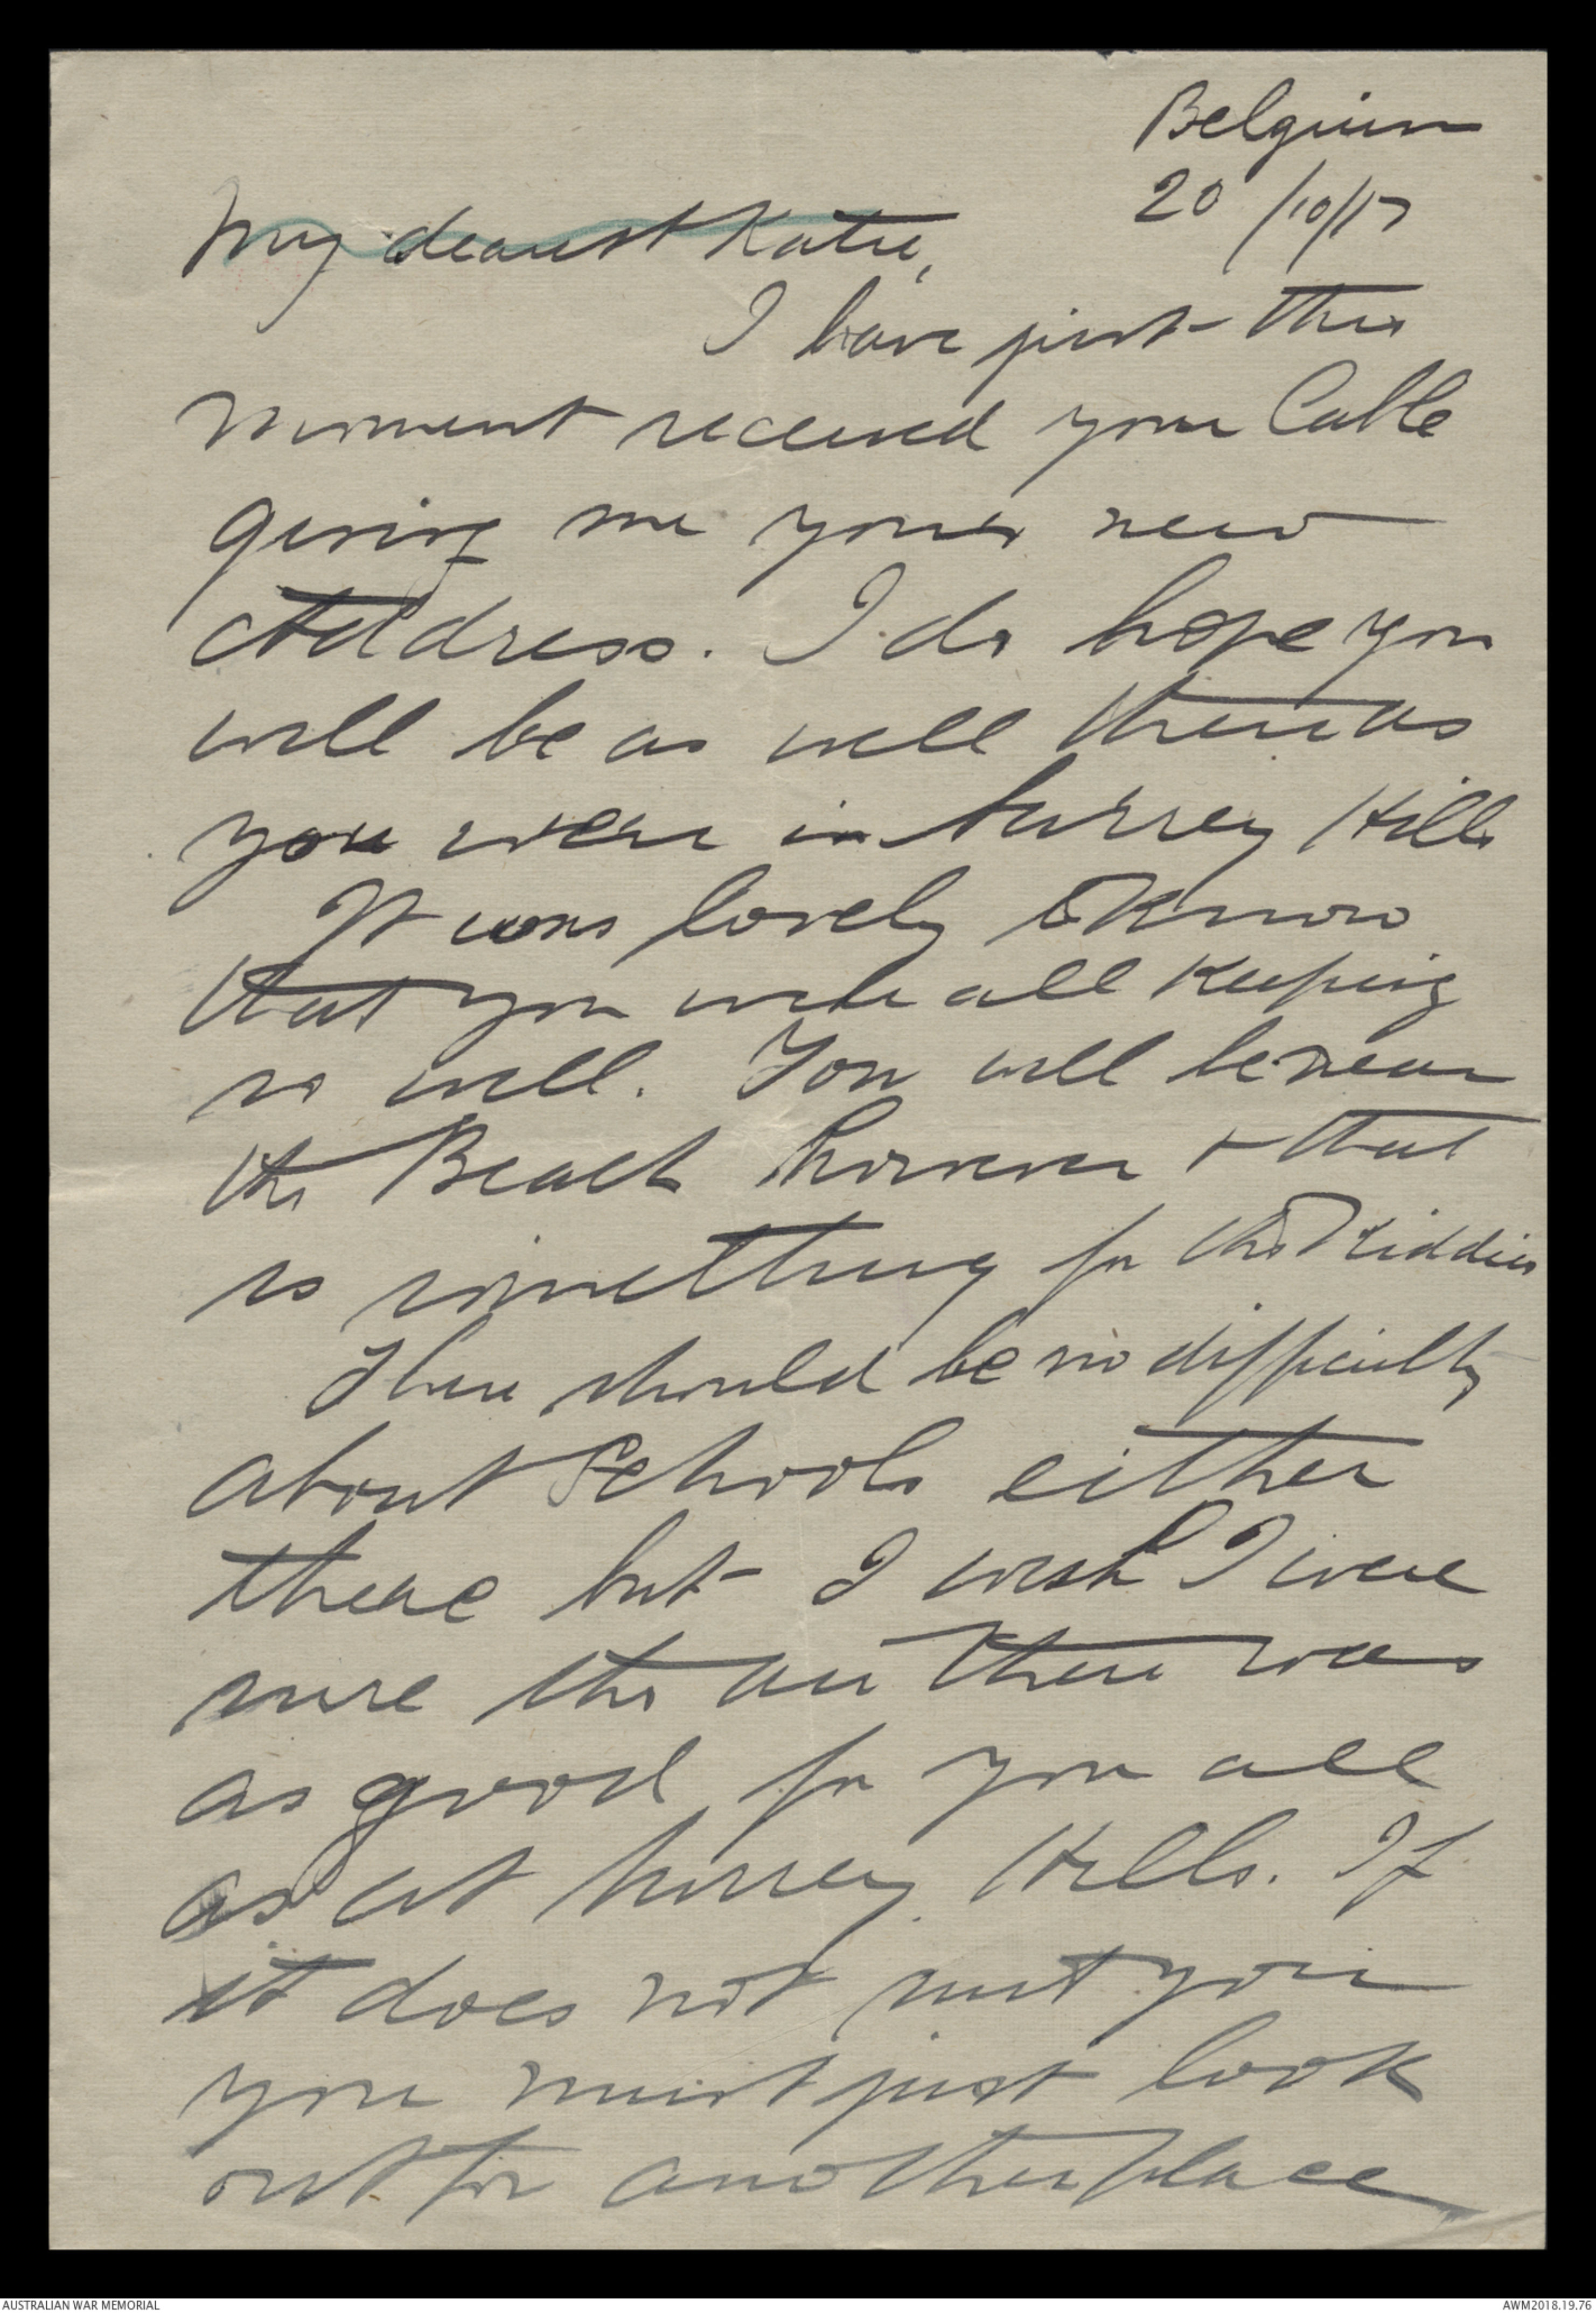 Belgium
20/10/17
My dearest Katie,
I have just this
moment received your Cable
giving me your new
Address. I do hope you
will be as well there as
you were in Surrey Hills
It was lovely to know
that you were all keeping
so well. You will be near
the Beach however & that
is something for the Kiddies
There should be no difficulty
about Schools either
there but I wish I were
sure the air there was
as good for you all
as at Surrey Hills. If
it does not suit you
you must just look
out for another place
AUSTRALIAN WAR MEMORIAL
AWM2018.19.76